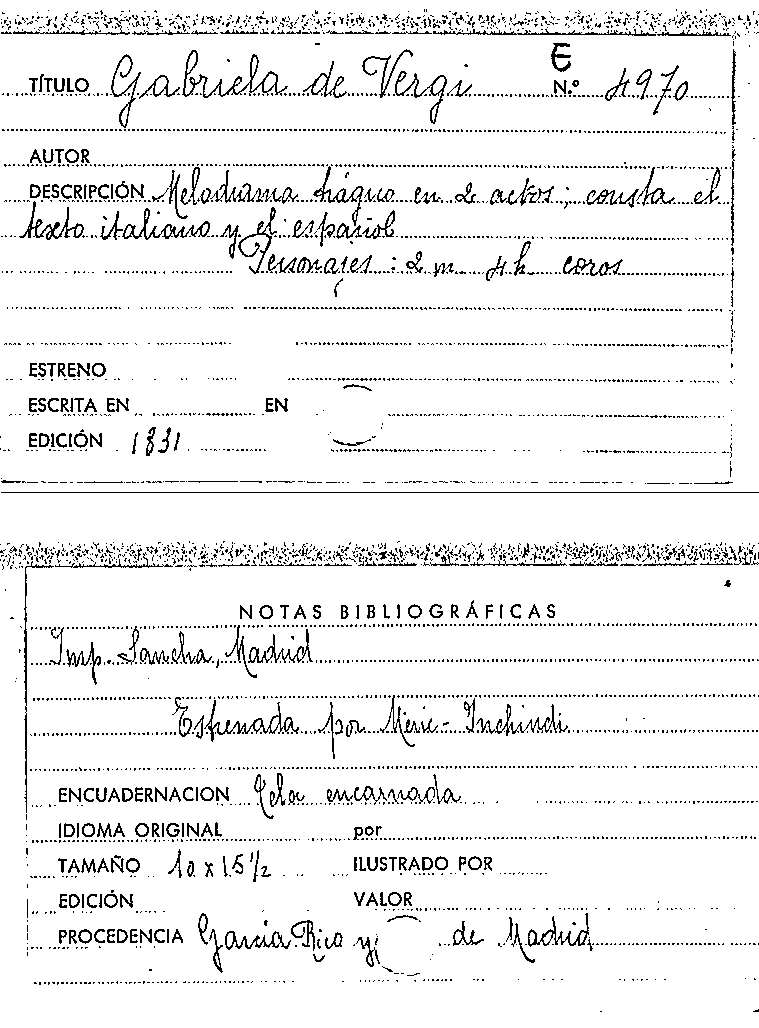 E
TÍTULO Gabriela de Vergi N.º 4970
AUTOR
DESCRIPCIÓN Melodrama trágico en 2 actos; consta el
texto italiano y el español
Personajes: 2 m 4 h coros
ESTRENO
ESCRITA EN EN
EDICIÓN 1831
NOTAS BIBLIOGRÁFICAS
Imp. Sancha, Madrid
Estrenada por Meric-Inchindi
ENCUADERNACION Tela encarnada
IDIOMA ORIGINAL por
TAMAÑO 10 x 15 1/2 ILUSTRADO POR
EDICIÓN VALOR
PROCEDENCIA García Rico y de Madrid